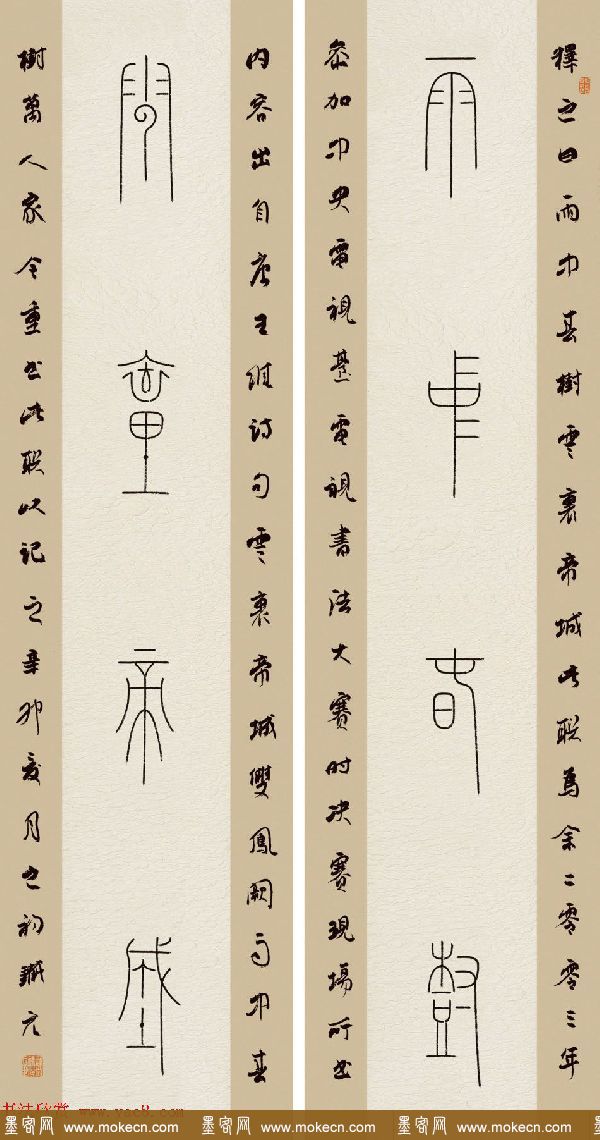 釋文曰雨中春樹雲裏帝城此聯為余二零零三年
雨中春樹
參加中央電視臺電視書法大賽時決賽現場所書
内容出自唐王維詩句雲裏帝城雙鳳闕雨中春
雲裏帝城
樹萬人家今重書此聯以記之辛卯夏月之初
墨客网 www.mokecn.com 墨客网 www.mokecn.com 墨客网 www.mokecn.com